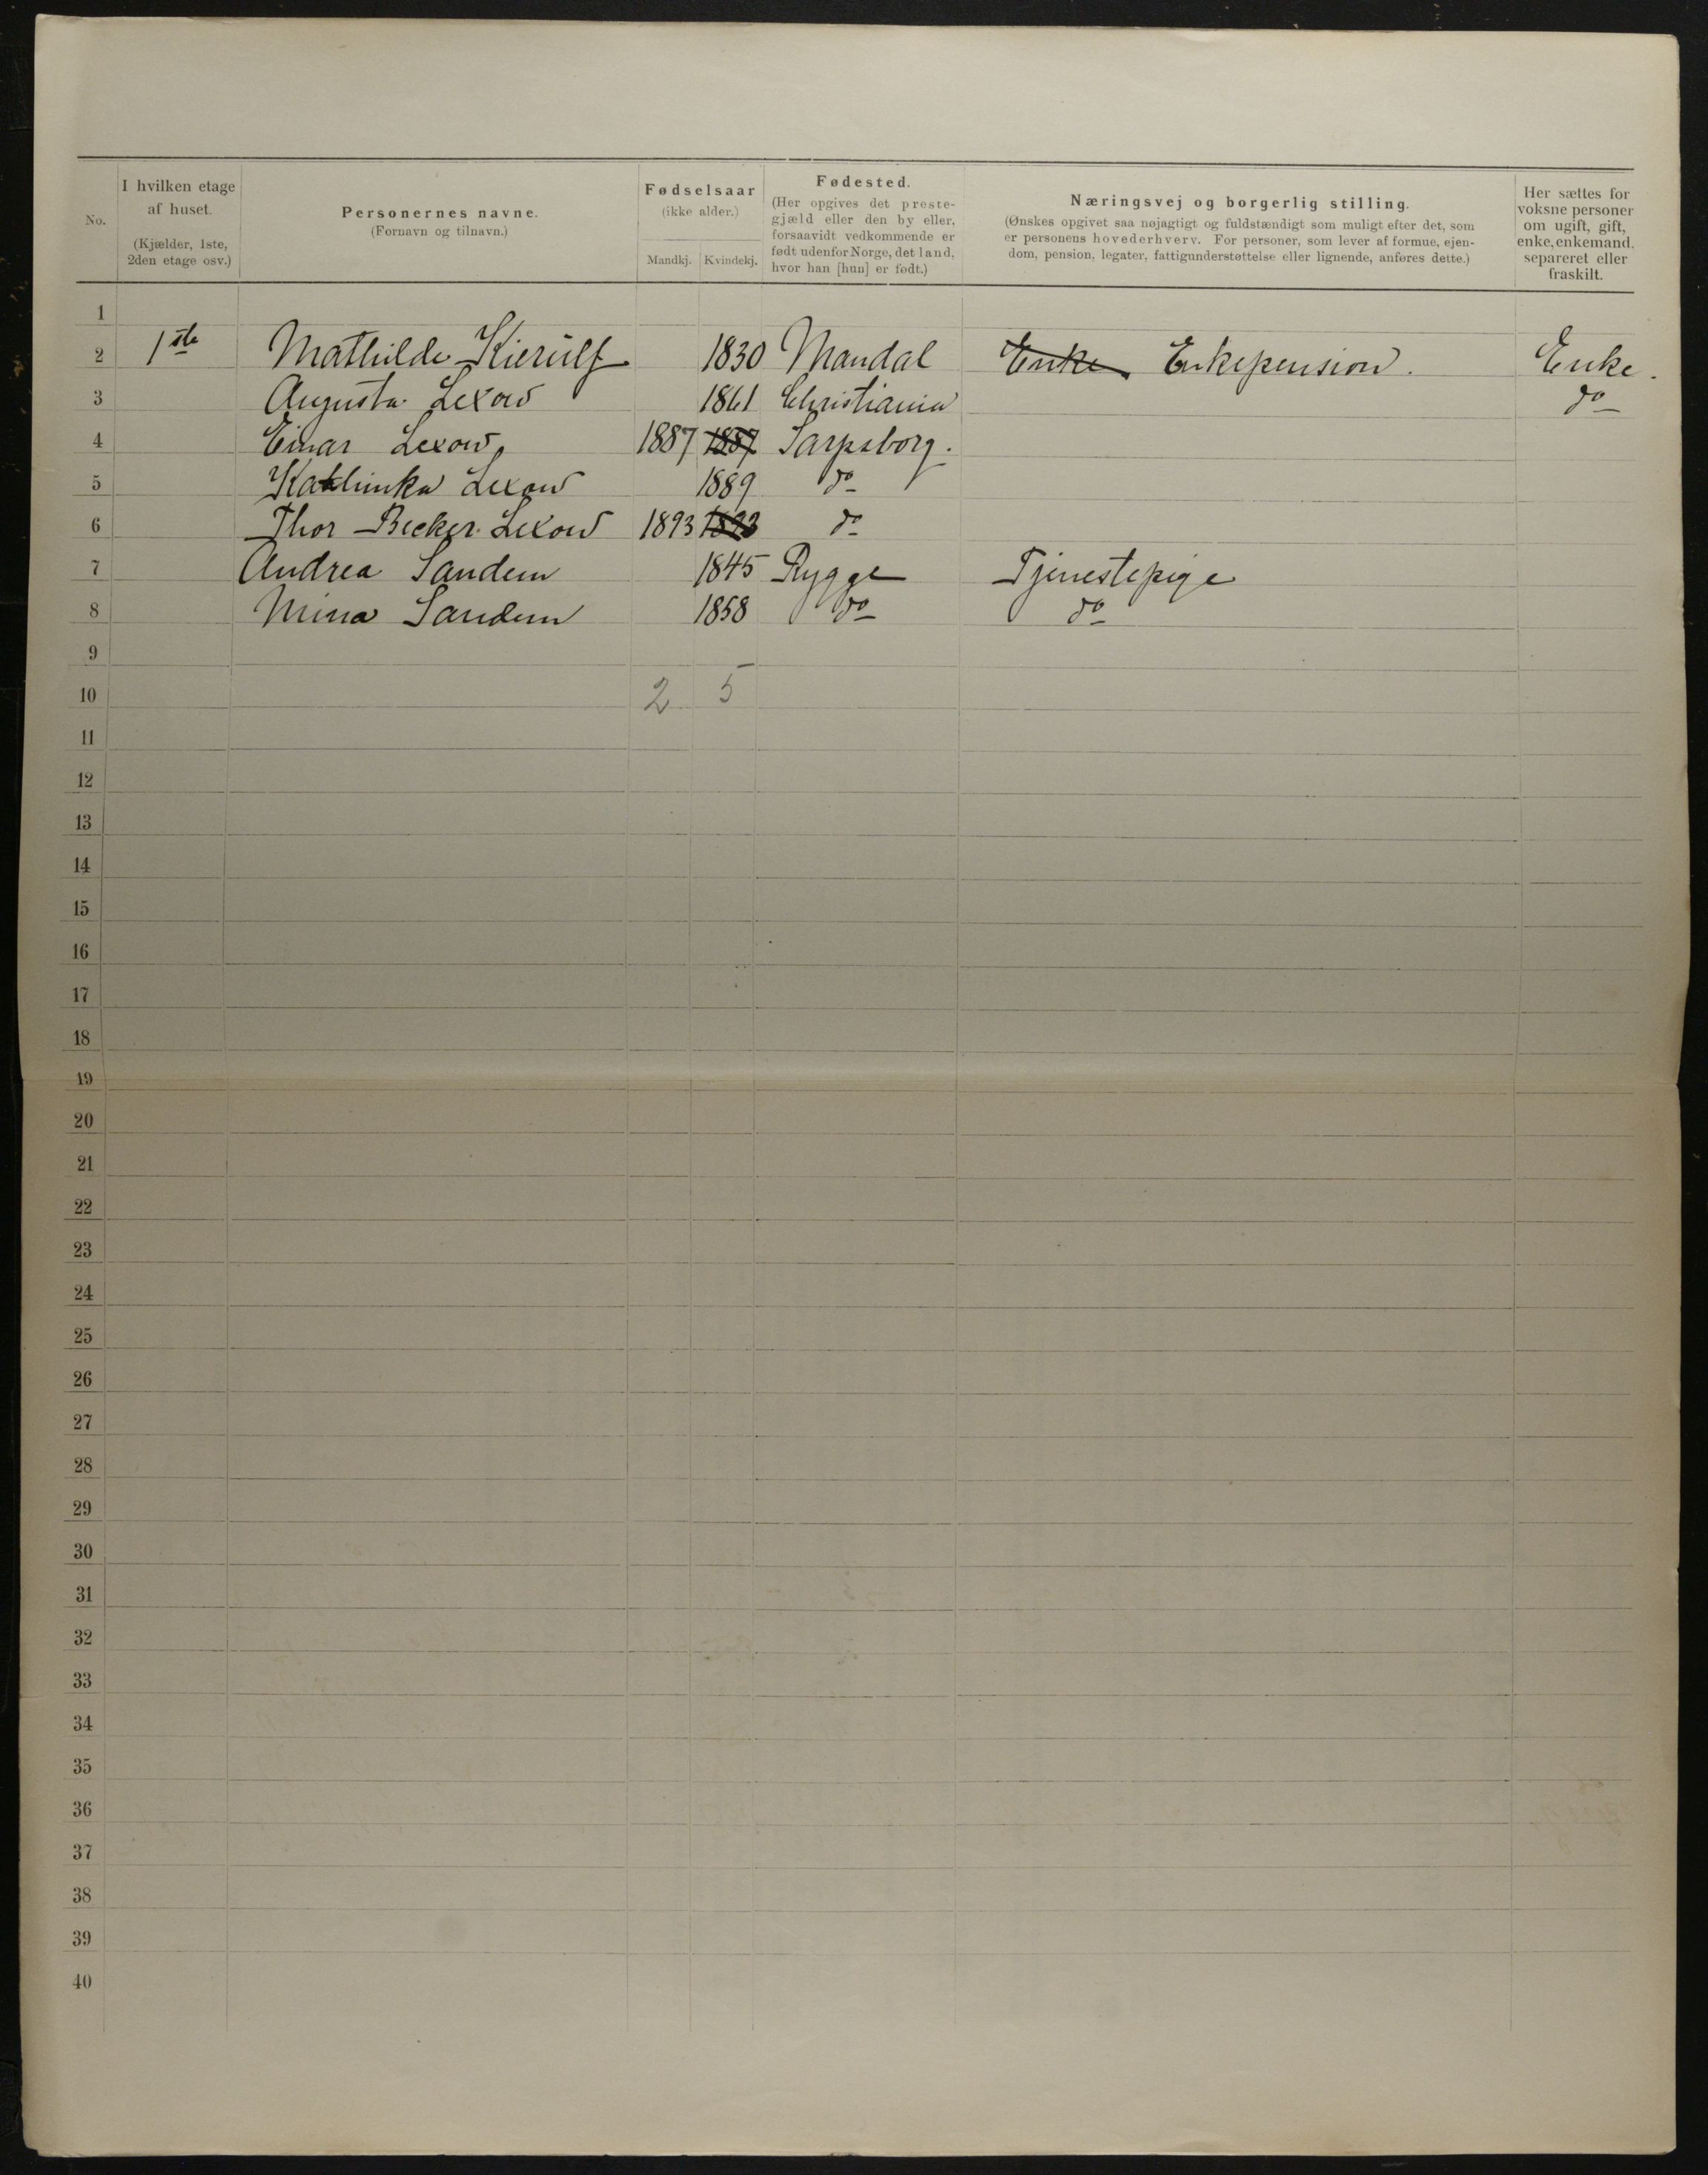 No.
I hvilken etage
af huset.
(Kjælder, 1ste,
2den etage osv.)
Personernes navne.
(Fornavn og tilnavn.)
Fødselsaar
(ikke alder.)
Mandkj. Kvindekj.
Fødested.
(Her opgives det preste-
gjæld eller den by eller,
forsaavidt vedkommende er
født udenfor Norge, det land,
hvor han [hun] er født.)
Næringsvej og borgerlig stilling.
(Ønskes opgivet saa nøjagtigt og fuldstændigt som muligt efter det, som
er personens hovederhverv. For personer, som lever af formue, ejen-
dom, pension, legater, fattigunderstøttelse eller lignende, anføres dette.)
Her sættes for
voksne personer
om ugift, gift,
enke, enkemand,
separeret eller
fraskilt.
1
2 1ste Mathilde Kierulf 1830 Mandal Enke Enkepension. Enke.
3 Augusta Lexow 1861 Christiania do
4 Einar Lexow, 1887 1887 Sarpsborg.
5 Kathinka Lexow 1889 do
6 Thor Becker Lexow 1893 1893 do
7 Andrea Sandem 1845 Rygge Tjenestepige
8 Mina Sandem 1858 do do
9
10 2 5
11
12
13
14
15
16
17
18
19
20
21
22
23
24
25
26
27
28
29
30
31
32
33
34
35
36
37
38
39
40